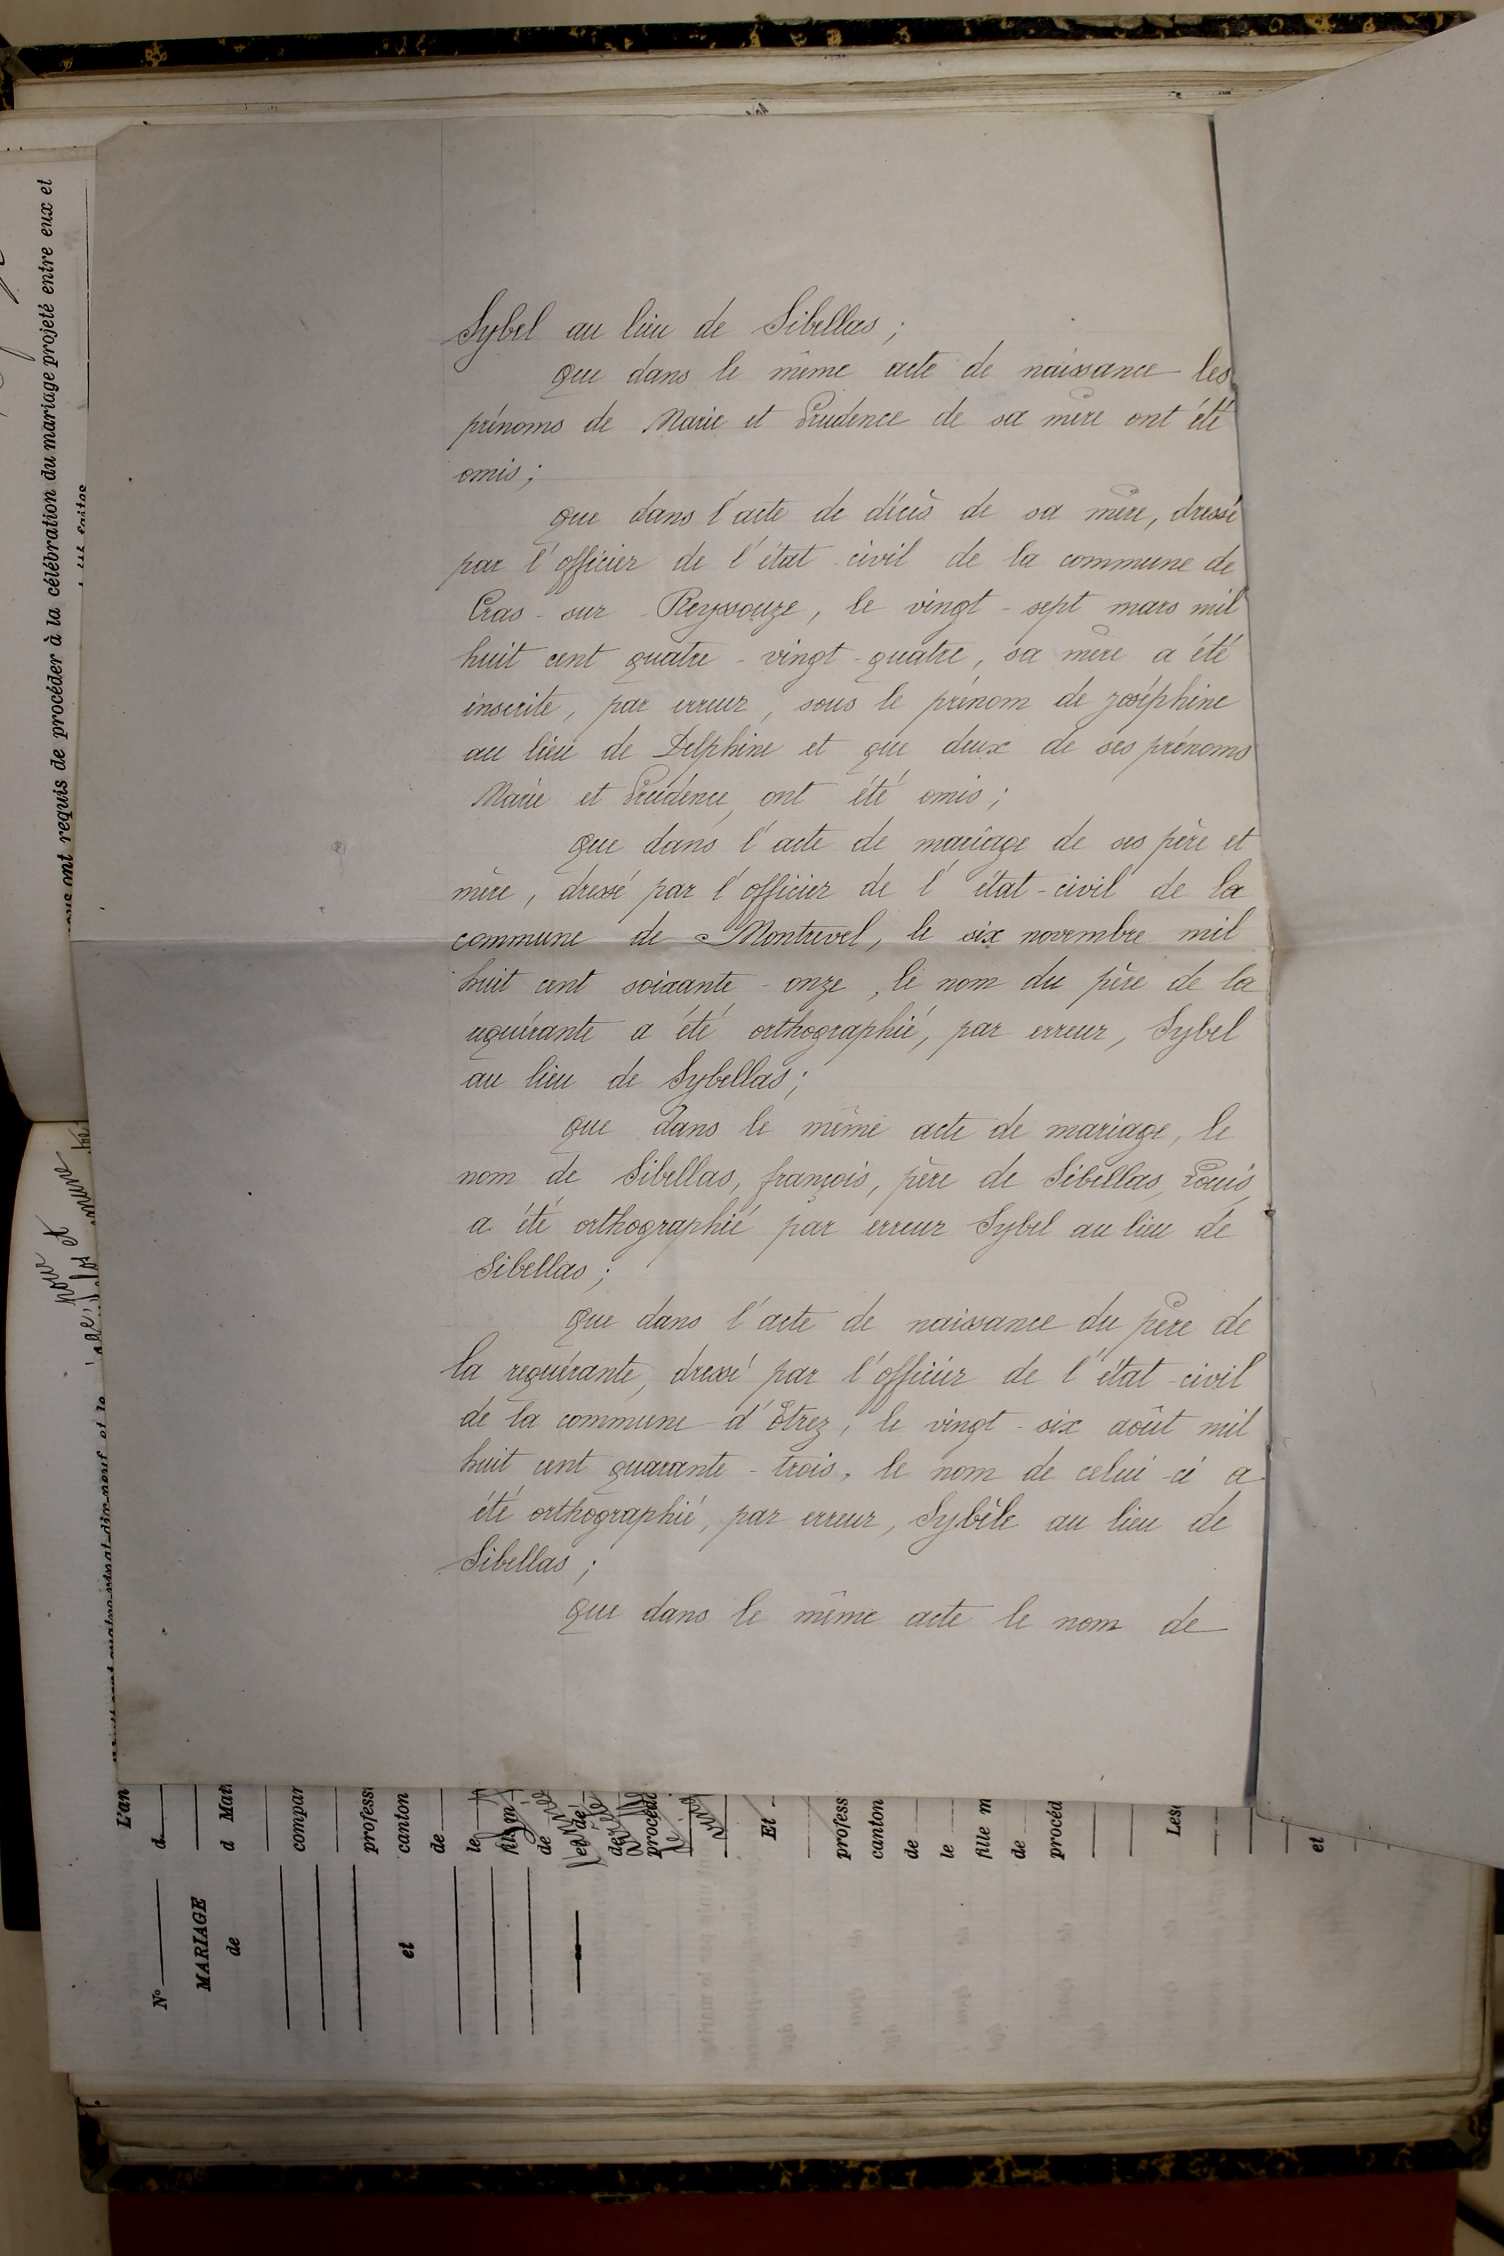 Sybel au lieu de Sibellas ;
que dans le même acte de naissance les
prénoms de Marie et Prudence de sa mère ont été
omis ;
que dans l'acte de décès de sa mère, dressé
par l'officier de l'état civil de la commune de
Cras-sur-Reyssouze, le vingt-sept mars mil
huit cent quatre-vingt-quatre, sa mère a été
inscrite, par erreur, sous le prénom de Joséphine
au lieu de Delphine et que deux de ses prénoms
Marie et Prudence, ont été omis ;
que dans l'acte de mariage de ses père et
mère, dressé par l'officier de l'état-civil de la
commune de Montrevel, le six novembre mil
huit cent soixante-onze, le nom du père de la
requérante a été orthographié, par erreur, Sybel
au lieu de Sybellas ;
que dans le même acte de mariage, le
nom de Sibellas, françois, père de Sibellas, Louis,
a été orthographié par erreur Sybel au lieu de
Sibellas ;
que dans l'acte de naissance du père de
la requérante, dressé par l'officier de l'état-civil
de la commune d'Etrez, le vingt-six août mil
huit cent quarante-trois, le nom de celui-ci a
été orthographié, par erreur, Sybèle au lieu de
Sibellas ;
que dans le même acte le nom de
ont requis de procéder à la célébration du mariage projeté entre eux et
pour
et
L'an
d
d Mai
compar
profess
canton
de
le
fils m
de
et de
procéd
Et
profess
canton
de
le
fille m
de
procéd
Les
et
N°
MARIAGE
de
et